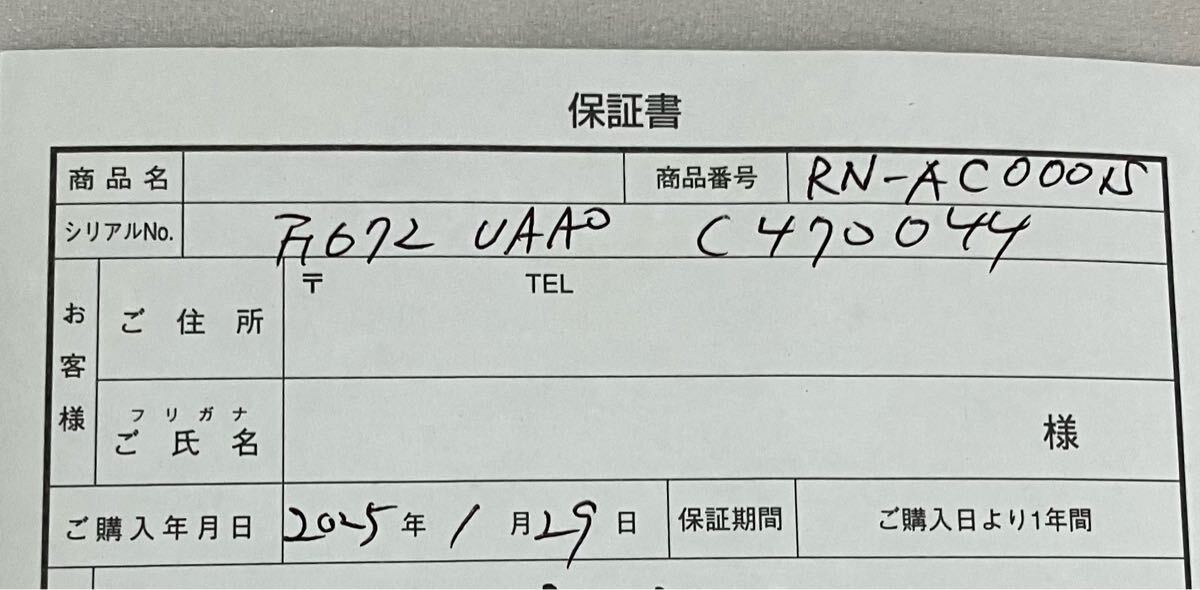 保証書
商品名 商品番号 RN-AC0001S
シリアルNo. 672 UAA0 C470044
〒 TEL
お客様
ご住所
フリガナ
ご氏名 様
ご購入年月日 2025年 1月29日 保証期間 ご購入日より1年間